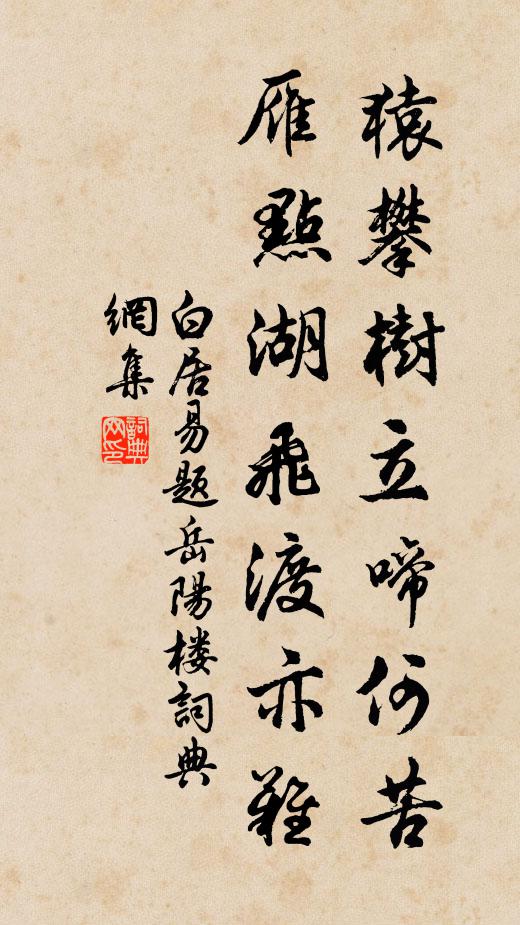 猿攀樹立啼何苦
雁點湖飛渡亦難
白居易題岳陽楼詞典
網集
詞典
网印